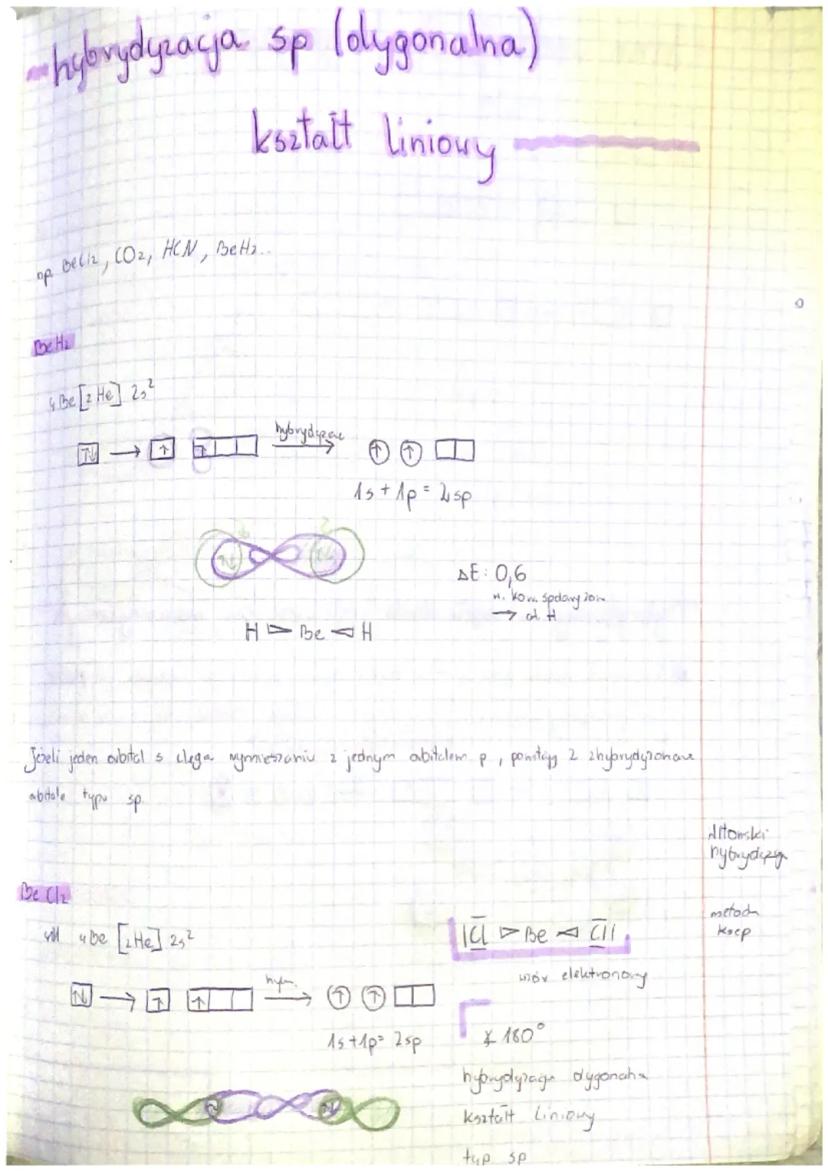 hybrydyzacja sp (dygonalna)
kształt liniowy
np BeCl2, CO2, HCN, BeH2...
BeH2
4Be [2He] 2s²
hybrydyzac
1s + 1p = 2sp
ΔE: 0,6
w. kow. spolaryzow
→ od H
H ▷ Be ◁ H
Jeżeli jeden orbital s ulega wymieszaniu z jednym orbitalem p, powstają 2 zhybrydyzowane
orbitale typu sp
hybrydyzacja
metoda
BeCl2
4Be [2He] 2s²
|Cl ▷ Be ◁ Cl|
wzór elektronowy
hybr.
1s + 1p = 2sp
∡ 180°
hybrydyzacja dygonalna
kształt liniowy
typ sp